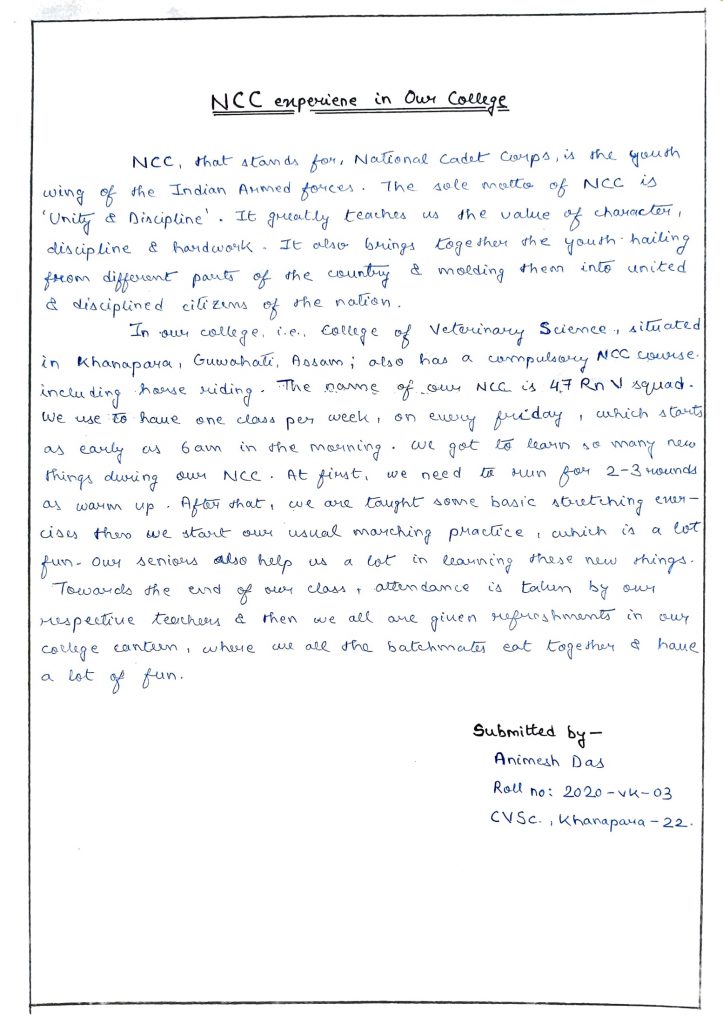 NCC experiene in Our College
NCC, that stands for, National Cadet Corps, is the youth
wing of the Indian Armed forces. The sole motto of NCC is
'Unity & Discipline'. It greatly teaches us the value of character,
discipline & hardwork. It also brings together the youth hailing
from different parts of the country & molding them into united
& disciplined citizens of the nation.
In our college, i.e., College of Veterinary Science, situated
in Khanapara, Guwahati, Assam; also has a compulsory NCC course
including horse riding. The name of our NCC is 47 Rn V squad.
We use to have one class per week, on every friday, which starts
as early as 6am in the morning. We got to learn so many new
things during our NCC. At first, we need to run for 2-3 rounds
as warm up. After that, we are taught some basic stretching exer-
cises then we start our usual marching practice, which is a lot
fun. Our seniors also help us a lot in learning these new things.
Towards the end of our class, attendance is taken by our
respective teachers & then we all are given refreshments in our
college canteen, where we all the batchmates eat together & have
a lot of fun.
Submitted by-
Animesh Das
Roll no: 2020-VK-03
CVSc., Khanapara-22.